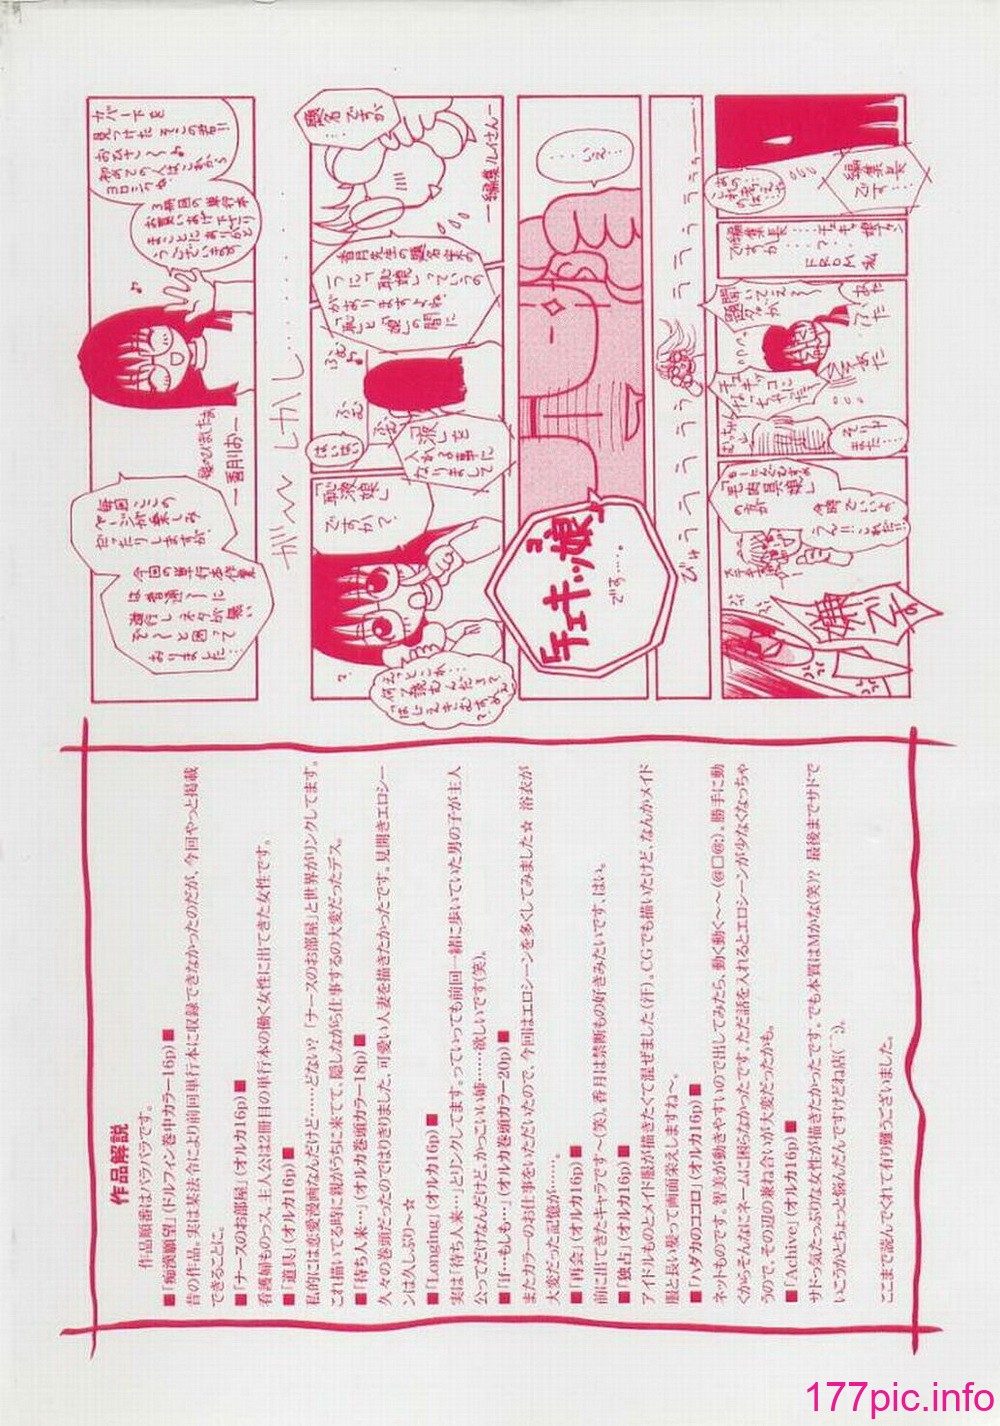 作品解説
作品順番はバラバラです。
■「痴漢願望」(ドルフィン巻中カラー16p)■
昔の作品。実は某法令により前回単行本に収録できなかったのだが、今回やっと掲載
できることに。
■「ナースのお部屋」(オルカ16p)■
看護婦ものっス。主人公は2冊目の単行本の働く女性に出てきた女性です。
■「道具」(オルカ16p)■
私的には恋愛漫画なんだけど……どない?「ナースのお部屋」と世界がリンクしてます。
これ描いてる時に親がうちに来てて、隠しながら仕事するの大変だったデス。
■「待ち人来…」(オルカ巻頭カラー18p)■
久々の巻頭だったのではりきりました、可愛い人妻を描きたかったです。見開きエロシー
ンは久しぶり〜☆
■「Longing」(オルカ16p)■
実は「待ち人来…」とリンクしてます。っていっても前回一緒に歩いていた男の子が主人
公ってだけなんだけど。かっこいい姉……欲しいです(笑)。
■「if…もしも…」(オルカ巻頭カラー20p)■
またカラーのお仕事をいただいたので、今回はエロシーンを多くしてみました☆ 浴衣が
大変だった記憶が……。
■「再会」(オルカ16p)■
前に出てきたキャラです〜(笑)。香月は禁断もの好きみたいです、はい。
■「独占」(オルカ16p)■
アイドルものとメイド服が描きたくて混ぜました(汗)。CGでも描いたけど、なんかメイド
服と長い髪って画面栄えしますね〜。
■「ハダカのココロ」(オルカ16p)■
ネットものです。智美が動きやすいので出してみたら、動く動く〜〜(@□@;)。勝手に動
くからそんなにネームに困らなかったです。ただ話を入れるとエロシーンが少なくなっちゃ
うので、その辺の兼ね合いが大変だったかも。
■「Achive」(オルカ16p)■
サドっ気たっぷりな女性が描きたかったです。でも本質はMかな(笑)? 最後までサドで
いこうかとちょっと悩んだんですけどね店(⌒_⌒;)。
ここまで読んでくれて有り難うございました。
カバー下を
見つけたそこの君!!
おひさ〜〜♪
初めての人はこれから
ヨロシクね
3冊目の単行本
お買いあげ下さり
まことにありがと
うございます
♪
―香月りお―
毎回ここの
ページが楽しみ
だったりしますが、
今回の単行本作業
は普通〜に
進行しネタが無い
ぞ〜と困って
おりました…
しかし………
が〜〜
題名ですが
…
―編集ルイさん―
香月先生の題名案の
一つに「恥娘」っていうの
がありますよね
「恥」と「娘」の間に
ふむ
ふむ
ふむ
「液」を
入れる事に
なりまして
はいはい
「恥液娘」
ですか?
何えっとこれ…
って読むんだろ?
?
…いえ…
「チエキッ娘」
です……。
びゅうううううラララララぁぁ――
編集長
です…
あの
これ考え
たのは…
編集長……チエキッ娘タン
ですか……?
FROM 私
聞いてえ〜
題名が
あなた
チエ
キッコに
なっちゃった!!
そりゃ
また…
今時でいいや
うん!!これだ!!
ステキすぎ
嫌です
177pic.info